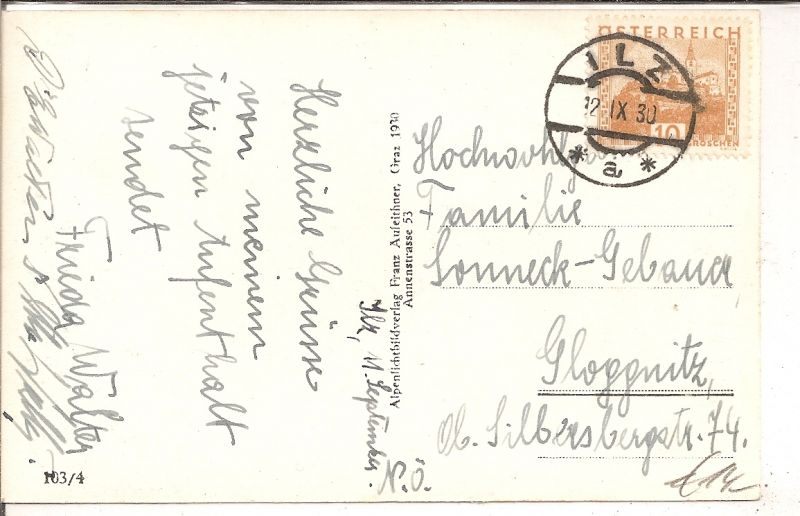 Ilz, 11. September.
Herzliche Grüsse
von meinem
jetzigen Aufenthalt
sendet
Frieda Walter
103/4
Alpenlichtbildverlag Franz Aufeithner, Graz 1930
Annenstrasse 53
ÖSTERREICH
10
GROSCHEN
ILZ
12 IX 30
* a *
Hochwohlg
Familie
Sonneck-Gebauer
Gloggnitz,
Ob. Silbersbergstr. 74.
N.Ö.